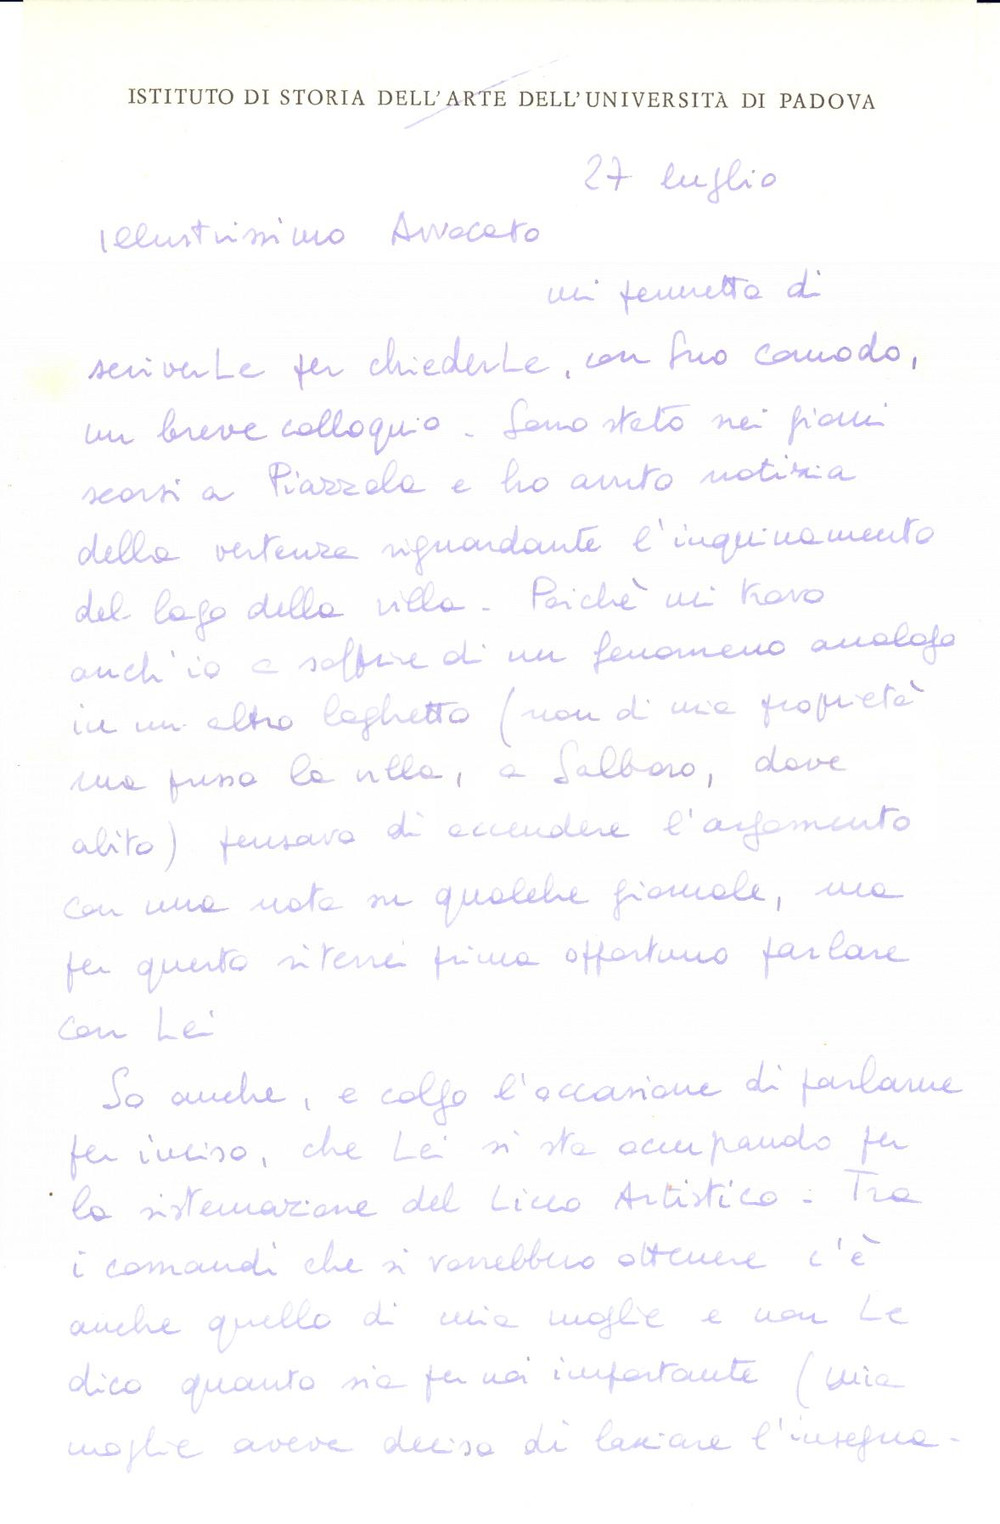 ISTITUTO DI STORIA DELL'ARTE DELL'UNIVERSITÀ DI PADOVA
27 luglio
Illustrissimo Avvocato
mi permetta di
scriverLe per chiederLe, con Suo comodo,
un breve colloquio. Sono stato nei giorni
scorsi a Piazzola e ho avuto notizia
della vertenza riguardante l'inquinamento
del lago della villa. Poichè mi trovo
anch'io a soffrire di un fenomeno analogo
in un altro laghetto (non di mia proprietà
ma presso la villa, a Salboro, dove
abito) pensavo di accendere l'argomento
con una nota su qualche giornale, ma
per questo riterrei prima opportuno parlare
con Lei
So anche, e colgo l'occasione di parlarne
per inciso, che Lei si sta occupando per
la sistemazione del Liceo Artistico. Tra
i comandi che si vorrebbero ottenere c'è
anche quello di mia moglie e non Le
dico quanto sia per noi importante (mia
moglie aveva deciso di lasciare l'insegna-